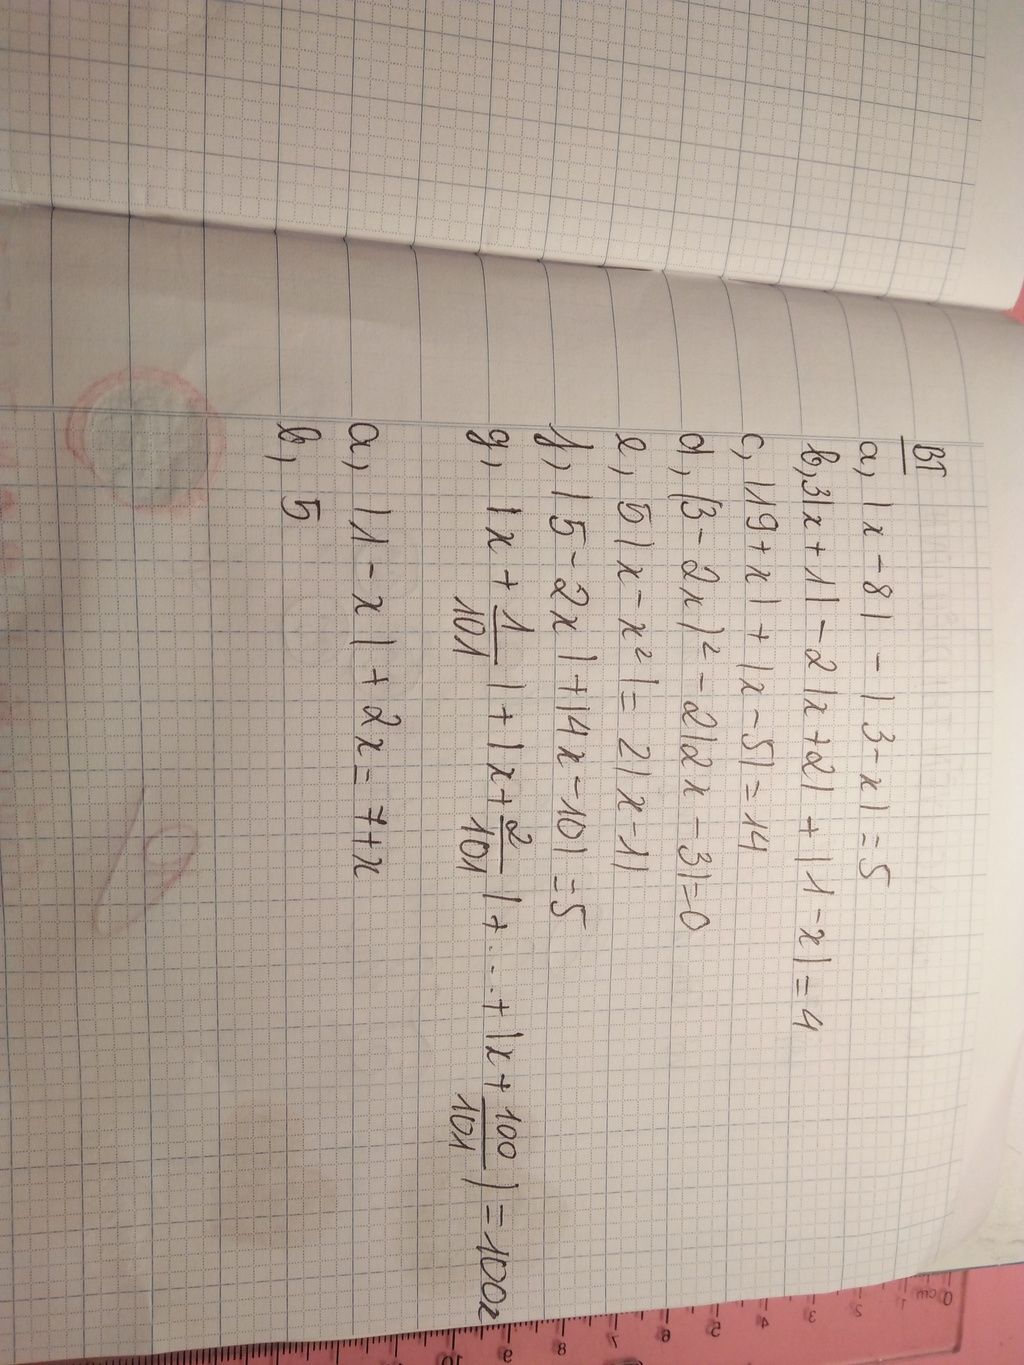 BT
a, |x - 8| - |3 - x| = 5
b, 3|x + 1| - 2|x + 2| + |1 - x| = 4
c, |19 + x| + |x - 5| = 14
d, (3 - 2x)² - 2|2x - 3| = 0
e, 5|x - x²| = 2|x - 1|
f, |5 - 2x| + |4x - 10| = 5
g, |x + 1/101| + |x + 2/101| + ... + |x + 100/101| = 100x
a, |1 - x| + 2x = 7 + x
b, 5
0 cm 1 2 3 4 5 6 7 8 9 10